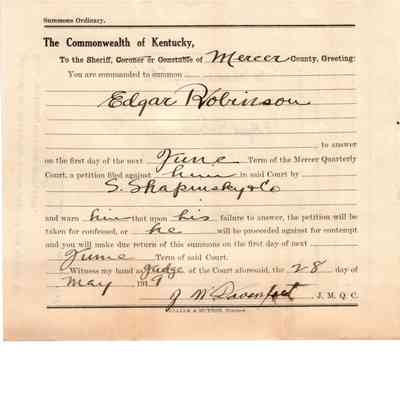 Summons Ordinary.
The Commonwealth of Kentucky,
To the Sheriff, Coroner or Constable of Mercer County, Greeting:
You are commanded to summon
Edgar Robinson
to answer
on the first day of the next June Term of the Mercer Quarterly
Court, a petition filed against him in said Court by
S. Shapinsky & Co
and warn him that upon his failure to answer, the petition will be
taken for confessed, or he will be proceeded against for contempt
and you will make due return of this summons on the first day of next
June Term of said Court.
Witness my hand as Judge of the Court aforesaid, the 28 day of
May 191
J W Davenport, J. M. Q. C.